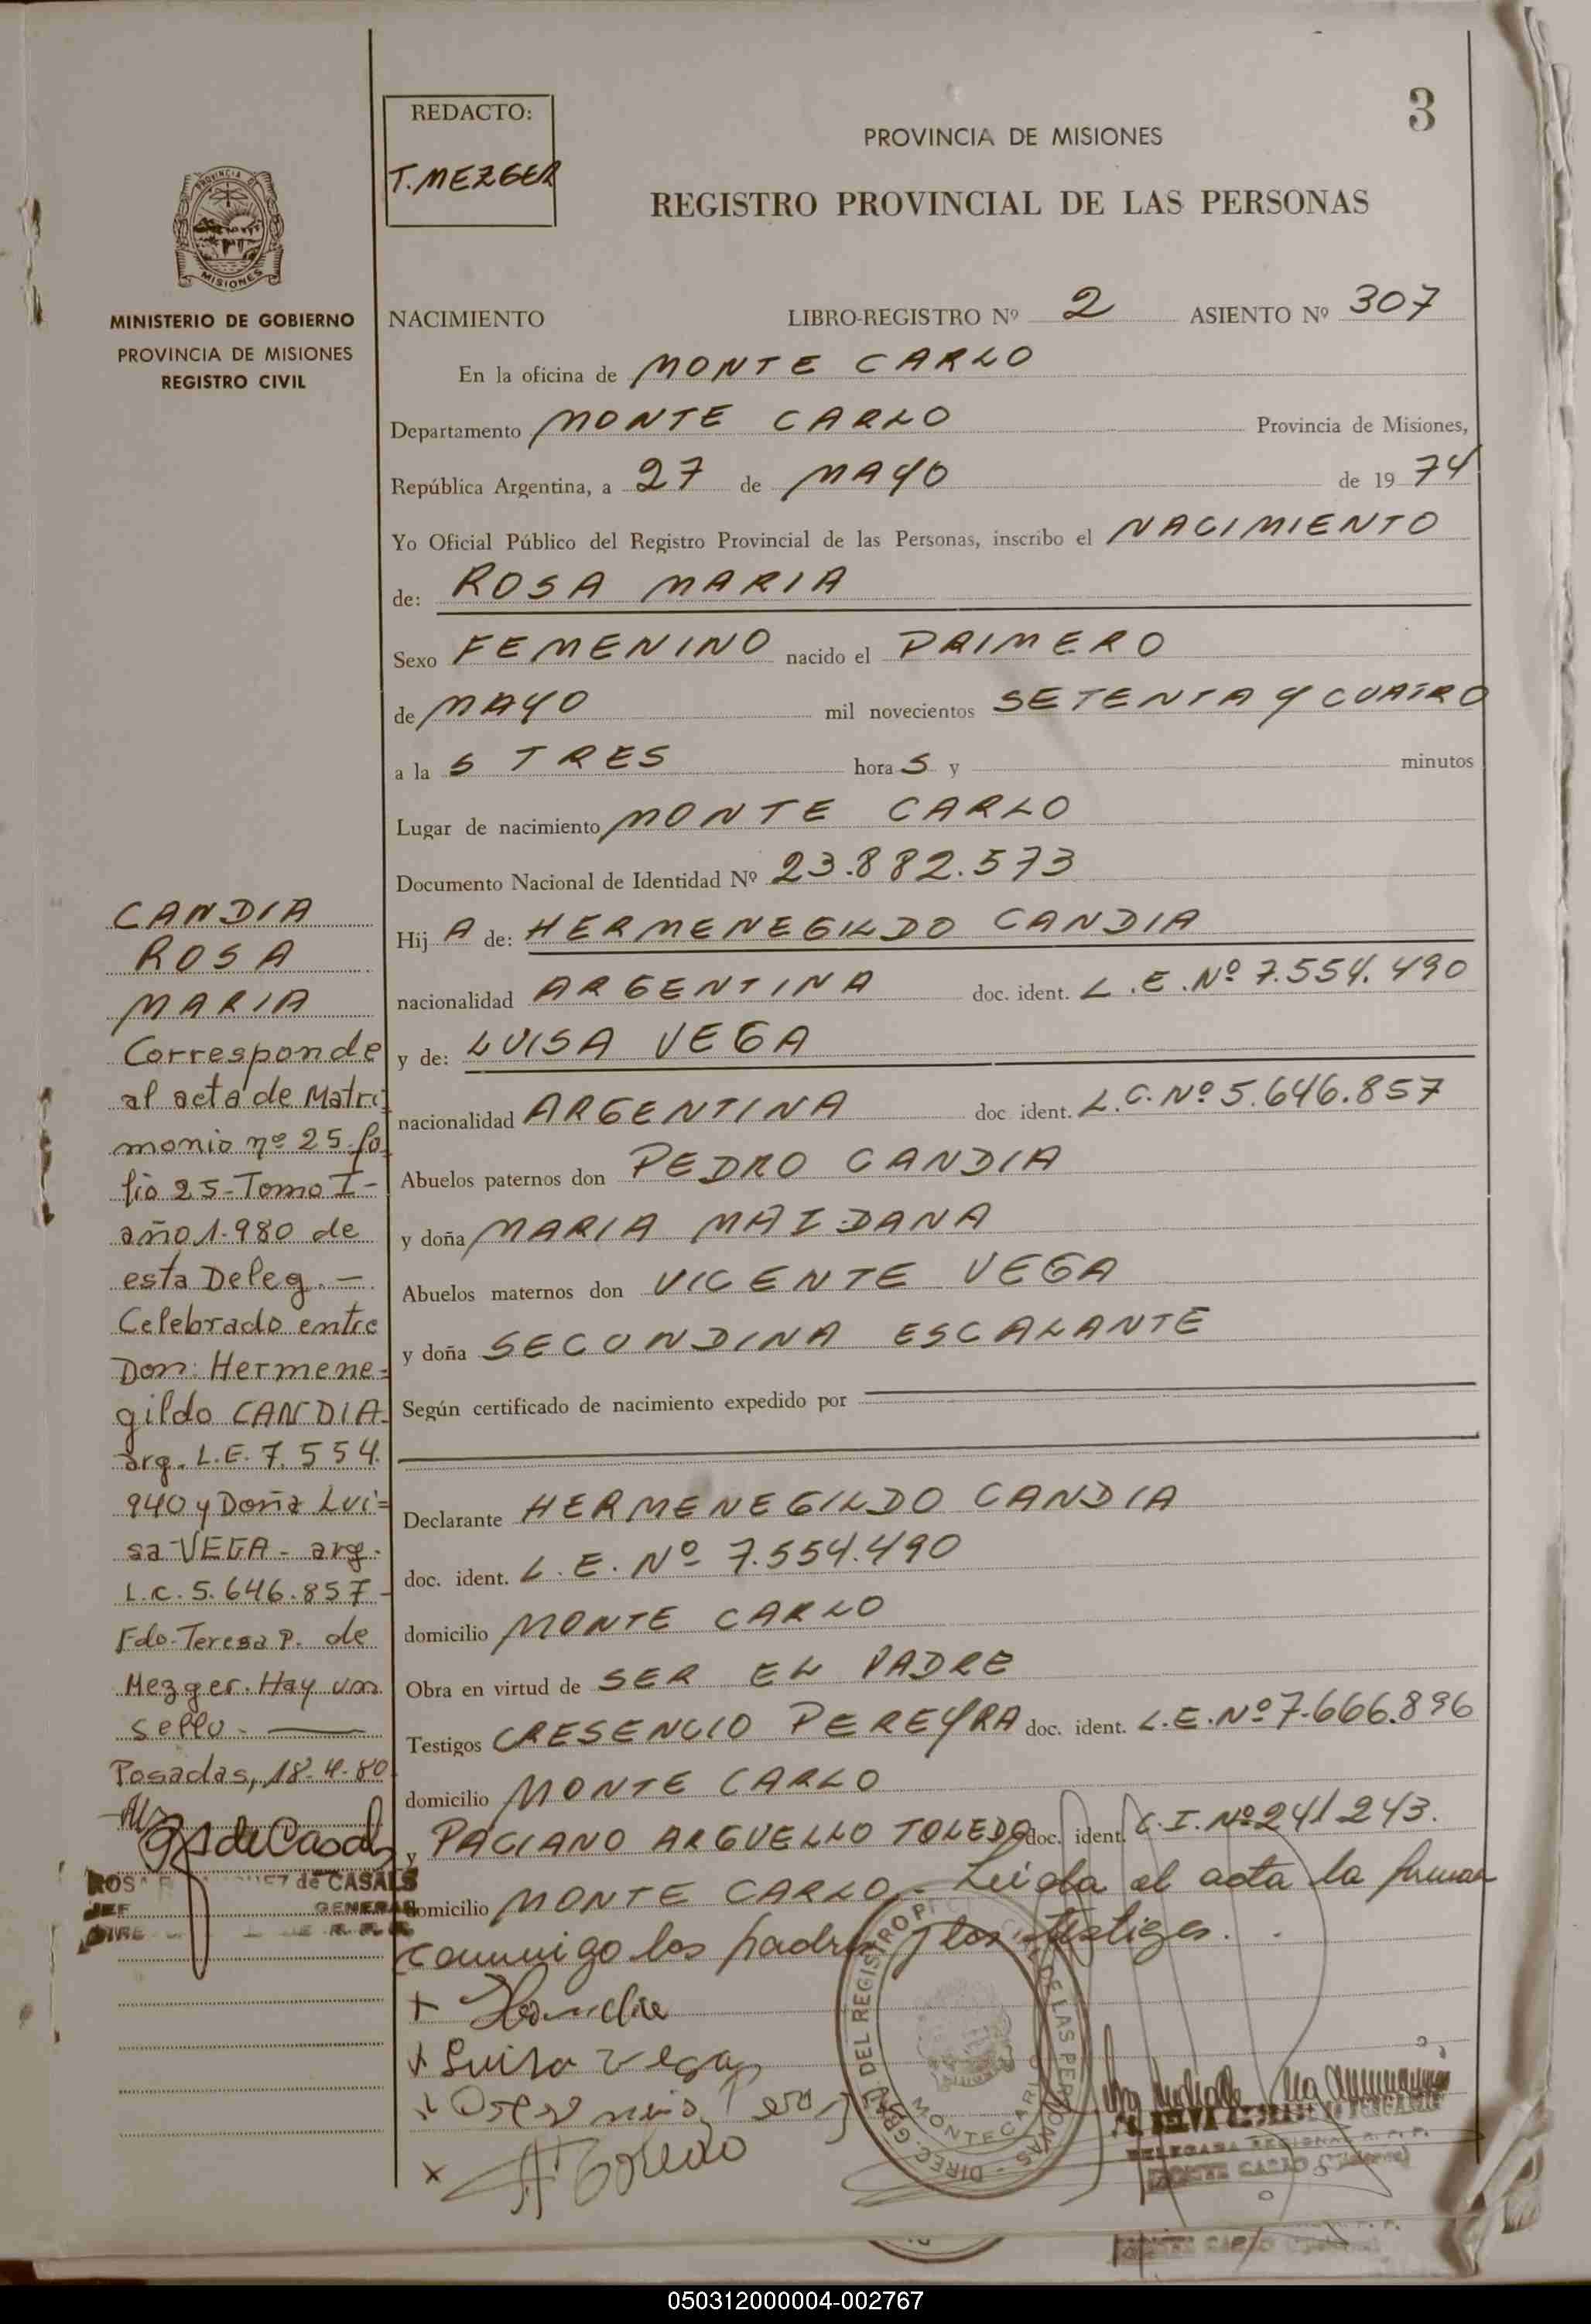 3
REDACTO:
T. MEZGER
PROVINCIA DE MISIONES
REGISTRO PROVINCIAL DE LAS PERSONAS
PROVINCIA DE
MISIONES
MINISTERIO DE GOBIERNO
PROVINCIA DE MISIONES
REGISTRO CIVIL
NACIMIENTO LIBRO-REGISTRO Nº 2 ASIENTO Nº 307
En la oficina de MONTE CARLO
Departamento MONTE CARLO Provincia de Misiones,
República Argentina, a 27 de MAYO de 19 74
Yo Oficial Público del Registro Provincial de las Personas, inscribo el NACIMIENTO
de: ROSA MARIA
Sexo FEMENINO nacido el PRIMERO
de MAYO mil novecientos SETENTA Y CUATRO
a la S TRES hora S y minutos
Lugar de nacimiento MONTE CARLO
Documento Nacional de Identidad Nº 23.882.573
Hij A de: HERMENEGILDO CANDIA
nacionalidad ARGENTINA doc. ident. L.E.Nº 7.554.490
y de: LUISA VEGA
nacionalidad ARGENTINA doc ident. L.C.Nº 5.646.857
Abuelos paternos don PEDRO CANDIA
y doña MARIA MAIDANA
Abuelos maternos don VICENTE VEGA
y doña SECUNDINA ESCALANTE
Según certificado de nacimiento expedido por
Declarante HERMENEGILDO CANDIA
doc. ident. L.E. Nº 7.554.490
domicilio MONTE CARLO
Obra en virtud de SER EL PADRE
Testigos CRESENCIO PEREYRA doc. ident. L.E.Nº 7.666.896
domicilio MONTE CARLO
y PACIANO ARGUELLO TOLEDO doc. ident. C.I.Nº 241243.
domicilio MONTE CARLO.- Leida el acta la firman
conmigo los padres y los testigos.
+ HCandia
+ Luisa Vega
+
x A Toledo
CANDIA
ROSA
MARIA
Corresponde
al acta de Matri
monio nº 25-fo
lio 25-Tomo I-
año 1.980 de
esta Deleg.—
Celebrado entre
Don: Hermene-
gildo CANDIA
arg. L.E. 7.554.
940 y Doña Lui=
sa VEGA - arg.
L.C. 5.646.857-
Fdo. Teresa P. de
Mezger. Hay un
sello.
Posadas, 18-4-80
de Casals
ROSA de CASALS
GENERAL
DIREC. GRAL. DEL REGISTRO PROVINCIAL DE LAS PERSONAS
MONTECARLO
DELEGADA REGIONAL R.P.P.
MONTE CARLO (Misiones)
050312000004-002767